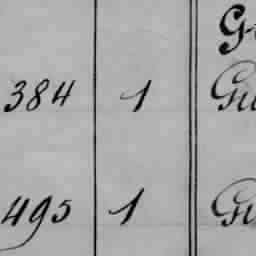 G
384 1 Gu
495 1 Gu